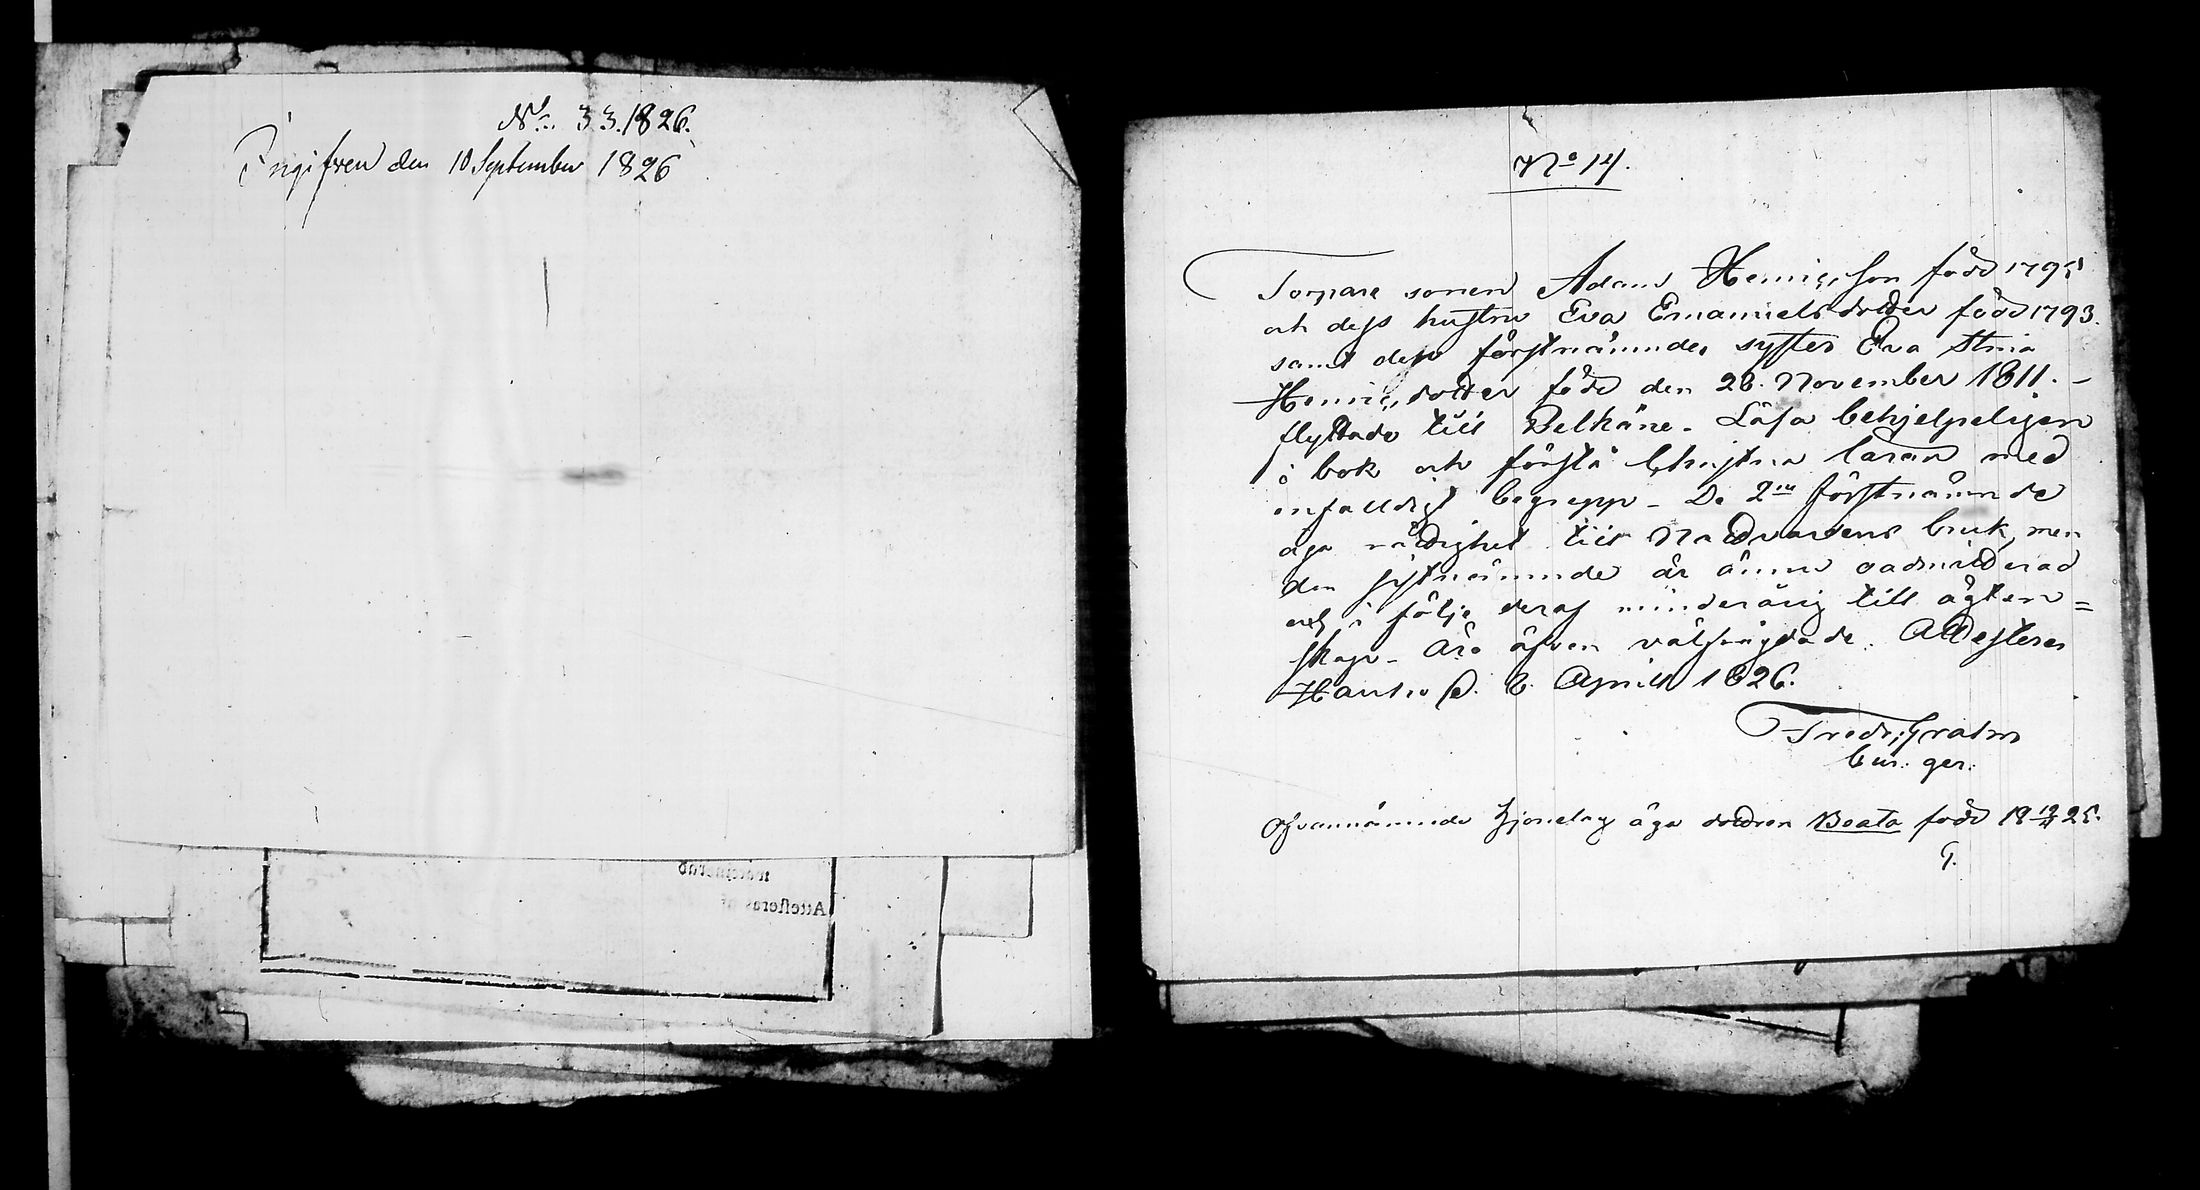 No. 33. 1826.
Ingifven den 10 September 1826
No 14.
Torpare sonen Adam Henric,, son född 1795
och dess hustru Eva Emanuels dotter född 1793.
samt dess förstnämndes syster Eva Stina
Henric,, dotter född den 28. November 1811. –
flyttade till Pelkäne. Läsa behjelpeligen
i bok och förstå Christna läran med
enfalldigt begrepp – De 2ne förstnämnde
äga rättighet till Nattvardens bruk, men
den sistnämnde är ännu oadmitterad
och i följe deraf minderårig till ägten=
skap – Äro äfven välfrägdade. Attesteras
Hauho d. 8. Aprill 1826.
Fredr. Grahn
Cur: ger:
Ofvannämnde hjonelag äga dottren Beata född 18 25.
G.
Attesteras